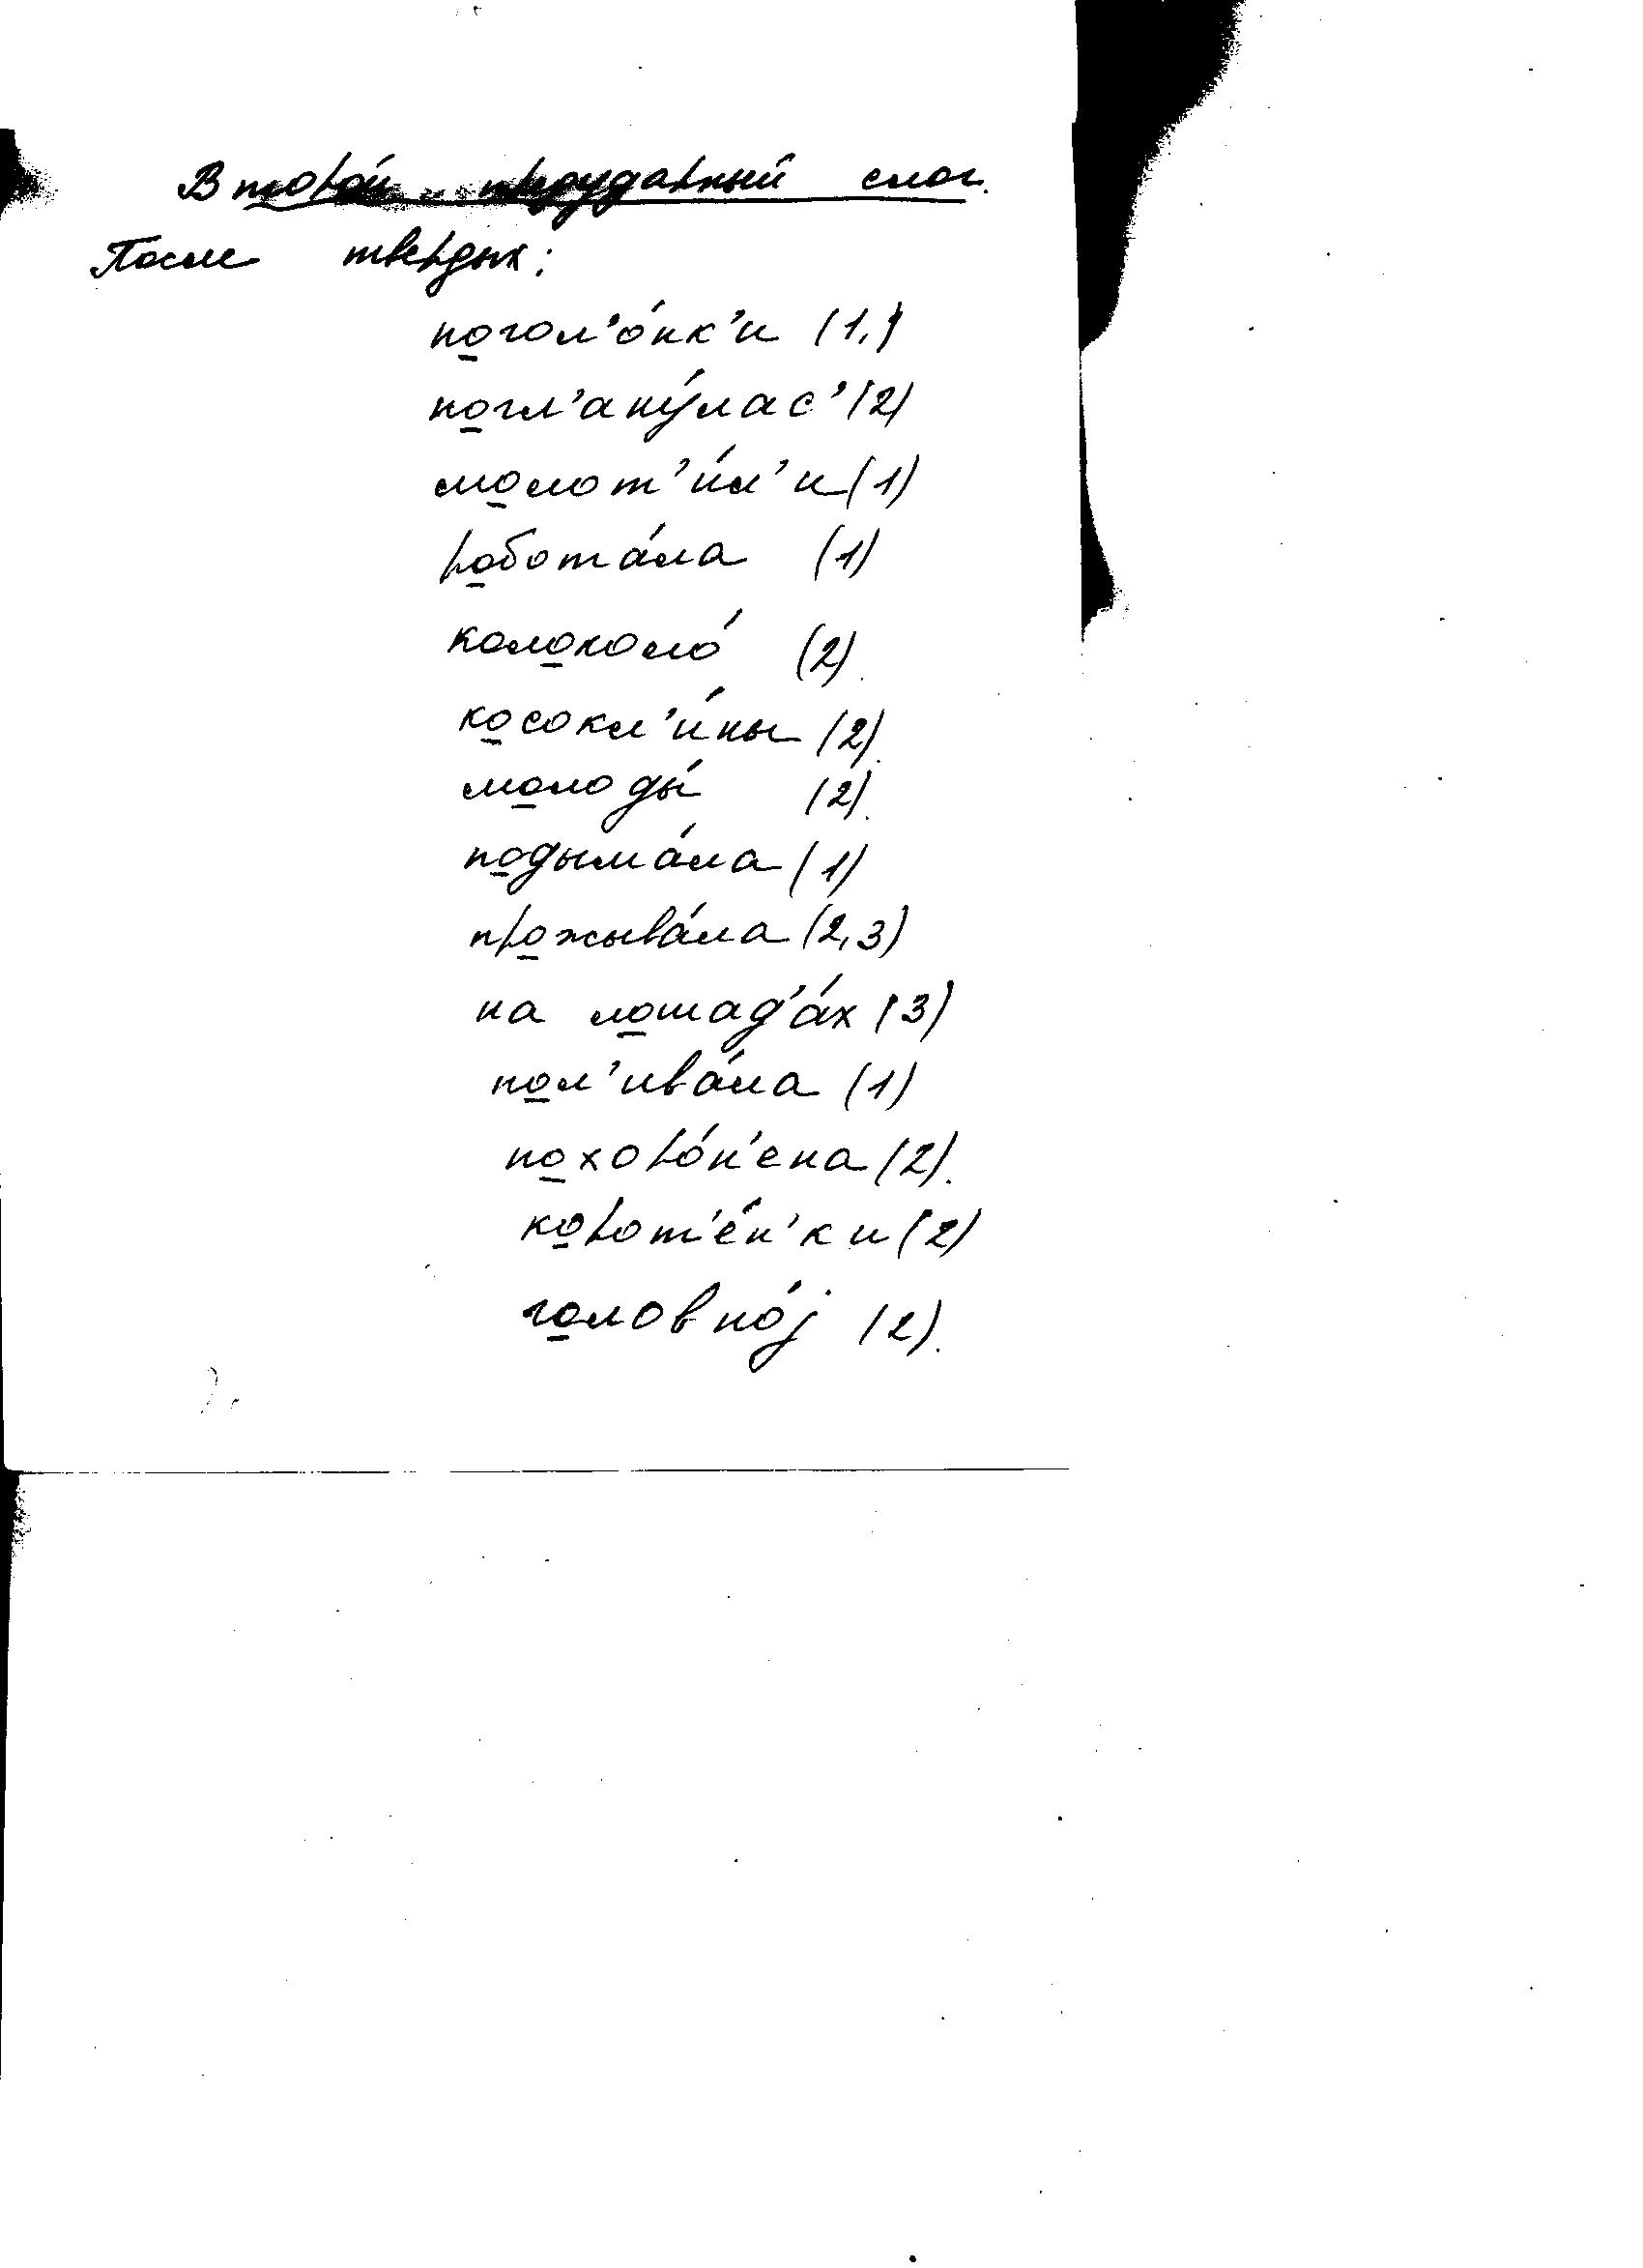 Второй предударный слог.
После твердых:
погол'о́нк'и (1,)
погл'ану́лас' (2)
молот'и́л'и (1)
робота́ла (1)
колоколо́ (2)
косокл'и́ны (2)
молоды́ (2)
подыма́ла (1)
прожыва́ла (2,3)
на лошад'а́х (3)
пол'ива́ла (1)
похоро́н'ена (2)
корот'е́н'ки (2)
головно́j (2)